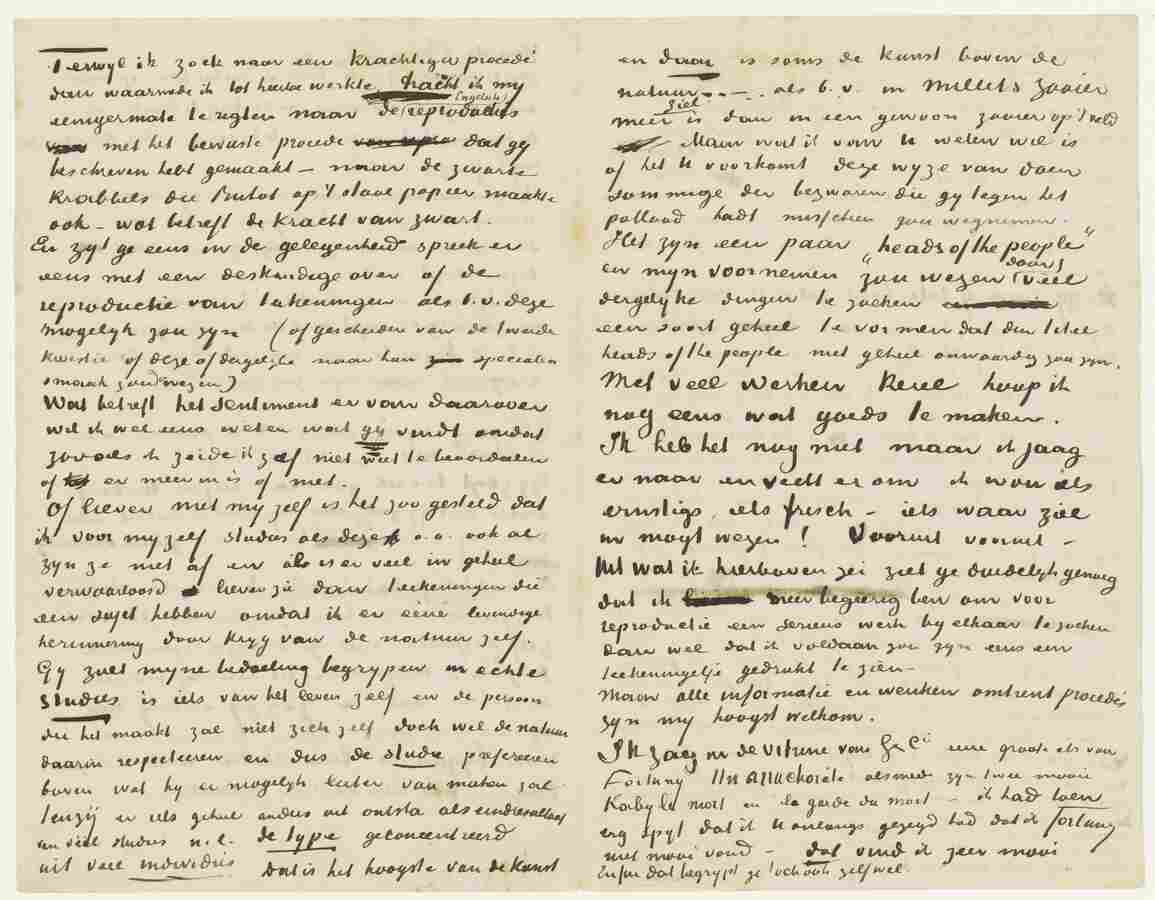 Terwyl ik zoek naar een krachtiger procedé
dan waarmede ik tot heden werkte tracht ik my
eenigermate te rigten naar de Engelsche reproducties
met het bewuste procede dat gy
beschreven hebt gemaakt – naar de zwarte
Krabbels die Buhot op 't staal papier maakte
ook – wat betreft de kracht van zwart.
En zyt ge eens in de gelegenheid spreek er
eens met een deskundige over of de
reproductie van teekeningen als b.v. deze
mogelyk zou zyn (of gescheiden van de tweede
kwestie of deze of dergelyke naar hun specialen
smaak zoud wezen)
Wat betreft het sentiment er van daarover
wil ik wel eens weten wat gy vindt omdat
zooals ik zeide ik zelf niet weet te beoordeelen
of er meer in is of niet.
Of liever met my zelf is het zoo gesteld dat
ik voor my zelf studies als deze o.a. ook al
zyn ze niet af en al is er veel in geheel
verwaarloosd liever zie dan teekeningen die
een sujet hebben omdat ik er eene levendige
herinnering door kryg van de natuur zelf.
Gy zult myne bedoeling begrypen in echte
studies is iets van het leven zelf en de persoon
die het maakt zal niet zich zelf doch wel de natuur
daarin respecteeren en dus de studie prefereeren
boven wat hy er mogelyk later van maken zal
tenzy er iets geheel anders uit ontsta als eindresultaat
van veel studies n.l. de type geconcentreerd
uit veel individus dat is het hoogste van de kunst
en daar is soms de kunst boven de
natuur – . . als b.v. in Millets zaaier
meer ziel is dan in een gewoon zaaier op 't veld
Maar wat ik van U weten wil is
of het U voorkomt deze wyze van doen
sommige der bezwaren die gy tegen het
potlood hadt misschien zou wegnemen.
Het zyn een paar "heads of the people"
en myn voornemen zou wezen door veel
dergelyke dingen te zoeken
een soort geheel te vormen dat den titel
heads of the people niet geheel onwaardig zou zyn.
Met veel werken Kerel hoop ik
nog eens wat goeds te maken.
Ik heb het nog niet maar ik jaag
er naar en vecht er om ik wou iets
ernstigs, iets frisch – iets waar ziel
in mogt wezen! Vooruit vooruit –
Uit wat ik hierboven zei ziet ge duidelyk genoeg
dat ik meer begierig ben om voor
reproductie een serieus werk by elkaar te zoeken
dan wel dat ik voldaan zou zyn eens een
teekeningetje gedrukt te zien –
Maar alle informatie en wenken omtrent procedés
zyn my hoogst welkom.
Ik zag in de vitrine van G&Cie eene groote ets van
Fortuny Un anachorète alsmede zyn twee mooie
Kabyle mort en la garde du mort – ik had toen
erg spyt dat ik U onlangs gezegd had dat ik Fortuny
niet mooi vond – dat vind ik zeer mooi
Enfin dat begrypt ge toch ook zelf wel.